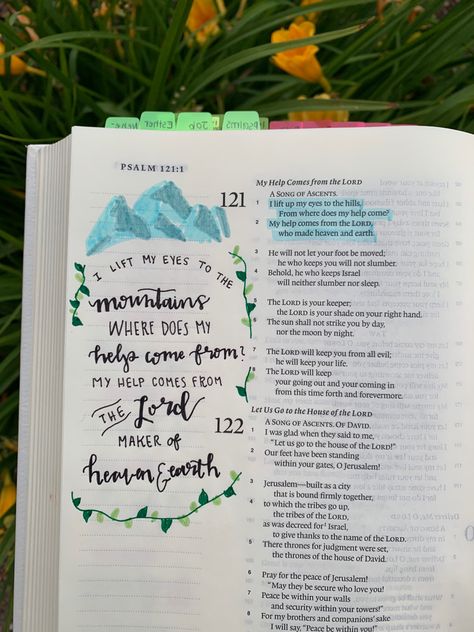 Nehe.
Esther
Job
Psalms
PSALM 121:1
I LIFT MY EYES TO THE
mountains
WHERE DOES MY
help come from?
MY HELP COMES FROM
THE Lord
MAKER OF
heaven & earth
My Help Comes from the LORD
121 A SONG OF ASCENTS.
1 I lift up my eyes to the hills.
From where does my help come?
2 My help comes from the LORD,
who made heaven and earth.
3 He will not let your foot be moved;
he who keeps you will not slumber.
4 Behold, he who keeps Israel
will neither slumber nor sleep.
5 The LORD is your keeper;
the LORD is your shade on your right hand.
6 The sun shall not strike you by day,
nor the moon by night.
7 The LORD will keep you from all evil;
he will keep your life.
8 The LORD will keep
your going out and your coming in
from this time forth and forevermore.
Let Us Go to the House of the LORD
122 A SONG OF ASCENTS. OF DAVID.
1 I was glad when they said to me,
“Let us go to the house of the LORD!”
2 Our feet have been standing
within your gates, O Jerusalem!
3 Jerusalem—built as a city
that is bound firmly together,
4 to which the tribes go up,
the tribes of the LORD,
as was decreed for¹ Israel,
to give thanks to the name of the LORD.
5 There thrones for judgment were set,
the thrones of the house of David.
6 Pray for the peace of Jerusalem!
“May they be secure who love you!
7 Peace be within your walls
and security within your towers!”
8 For my brothers and companions’ sake
I will say, “Peace be within you!”